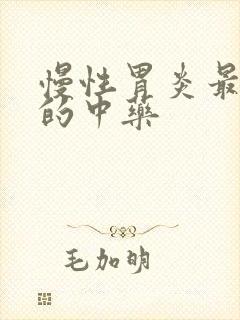 慢性胃炎最
的中藥
毛加明